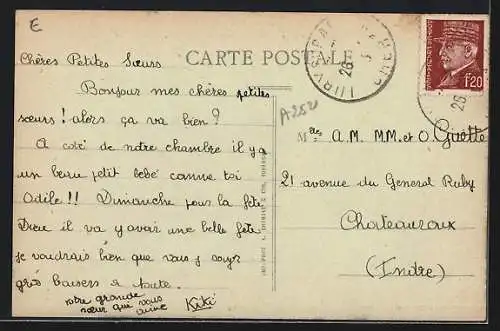 E
Chères Petites Sœurs
CARTE POSTALE
Bonjour mes chères petites
sœurs ! alors ça va bien ?
A côté de notre chambre il y a
un beau petit bébé comme toi
Odile !! Dimanche pour la fête
Dieu il va y avoir une belle fête
je voudrais bien que vous y soyez
gros baisers à toute.
votre grande
sœur qui vous
aime Kiki
Melles A.M. MM. et O. Guette
21 avenue du General Ruby
Chateauroux
(Indre)
f1.20
26